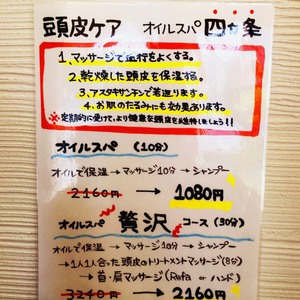 頭皮ケア オイルスパ 四か条
1.マッサージで血行をよくする。
2.乾燥した頭皮を保湿する。
3.アスタキサンチンで若返ります。
4.お肌のたるみにも効果あります。
※定期的に受けて、より健康な頭皮を維持しましょう!!
オイルスパ (10分)
オイルで保湿→マッサージ10分→シャンプー
2160円→1080円
オイルスパ 贅沢 コース (30分)
オイルで保湿→マッサージ10分→シャンプー
→1人1人合った頭皮のトリートメントマッサージ(8分)
→首・肩マッサージ(Refa or ハンド)
3240円→2160円